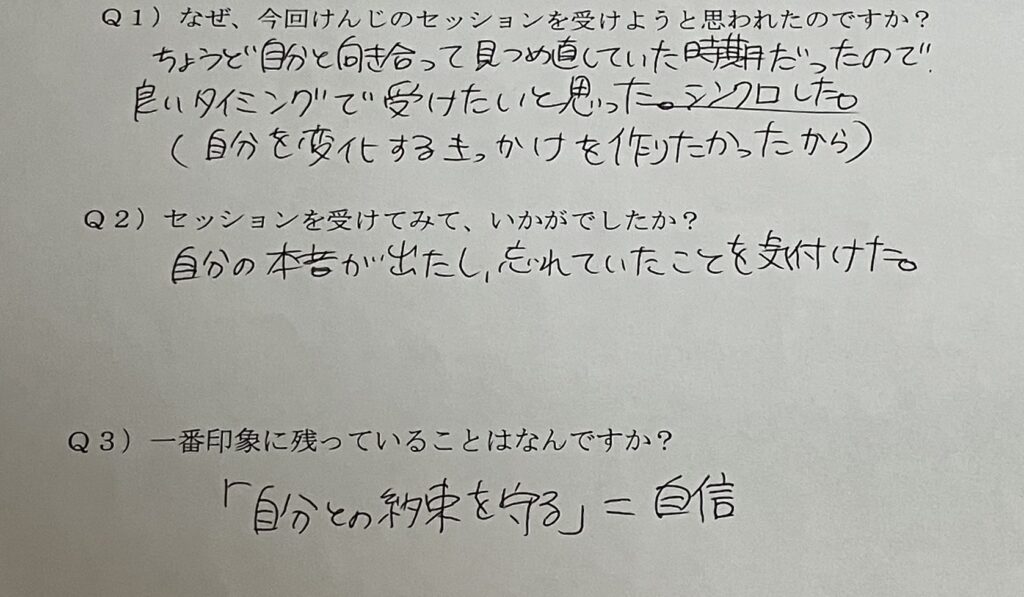 Q1）なぜ、今回けんじのセッションを受けようと思われたのですか？
ちょうど自分と向き合って見つめ直していた時期だったので
良いタイミングで受けたいと思った。シンクロした。
（自分を変化するきっかけを作りたかったから）
Q2）セッションを受けてみて、いかがでしたか？
自分の本音が出たし、忘れていたことを気付けた。
Q3）一番印象に残っていることはなんですか？
「自分との約束を守る」＝自信